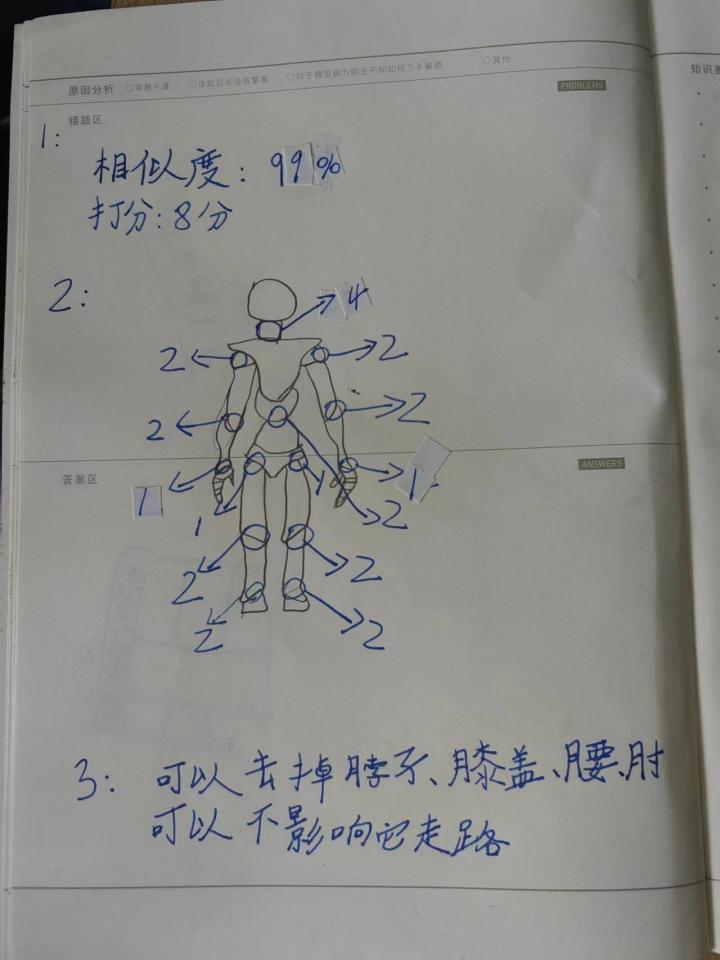 原因分析 ○审题不清 ○该知识点没有掌握 ○对于题型极为陌生不知如何下手解题 ○其他
PROBLEMS
知识
错题区
1:
相似度: 99%
打分: 8分
2:
4
2 2
2 2
ANSWERS
答案区
1 1
1 1 2
2 2
2 2
3: 可以去掉脖子、膝盖、腰、肘
可以不影响它走路